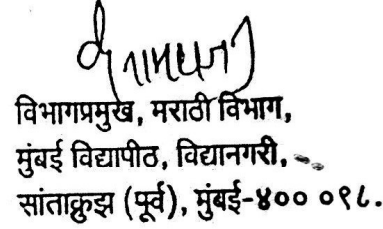 विभागप्रमुख, मराठी विभाग,
मुंबई विद्यापीठ, विद्यानगरी,
सांताक्रुझ (पूर्व), मुंबई-४०० ०९८.